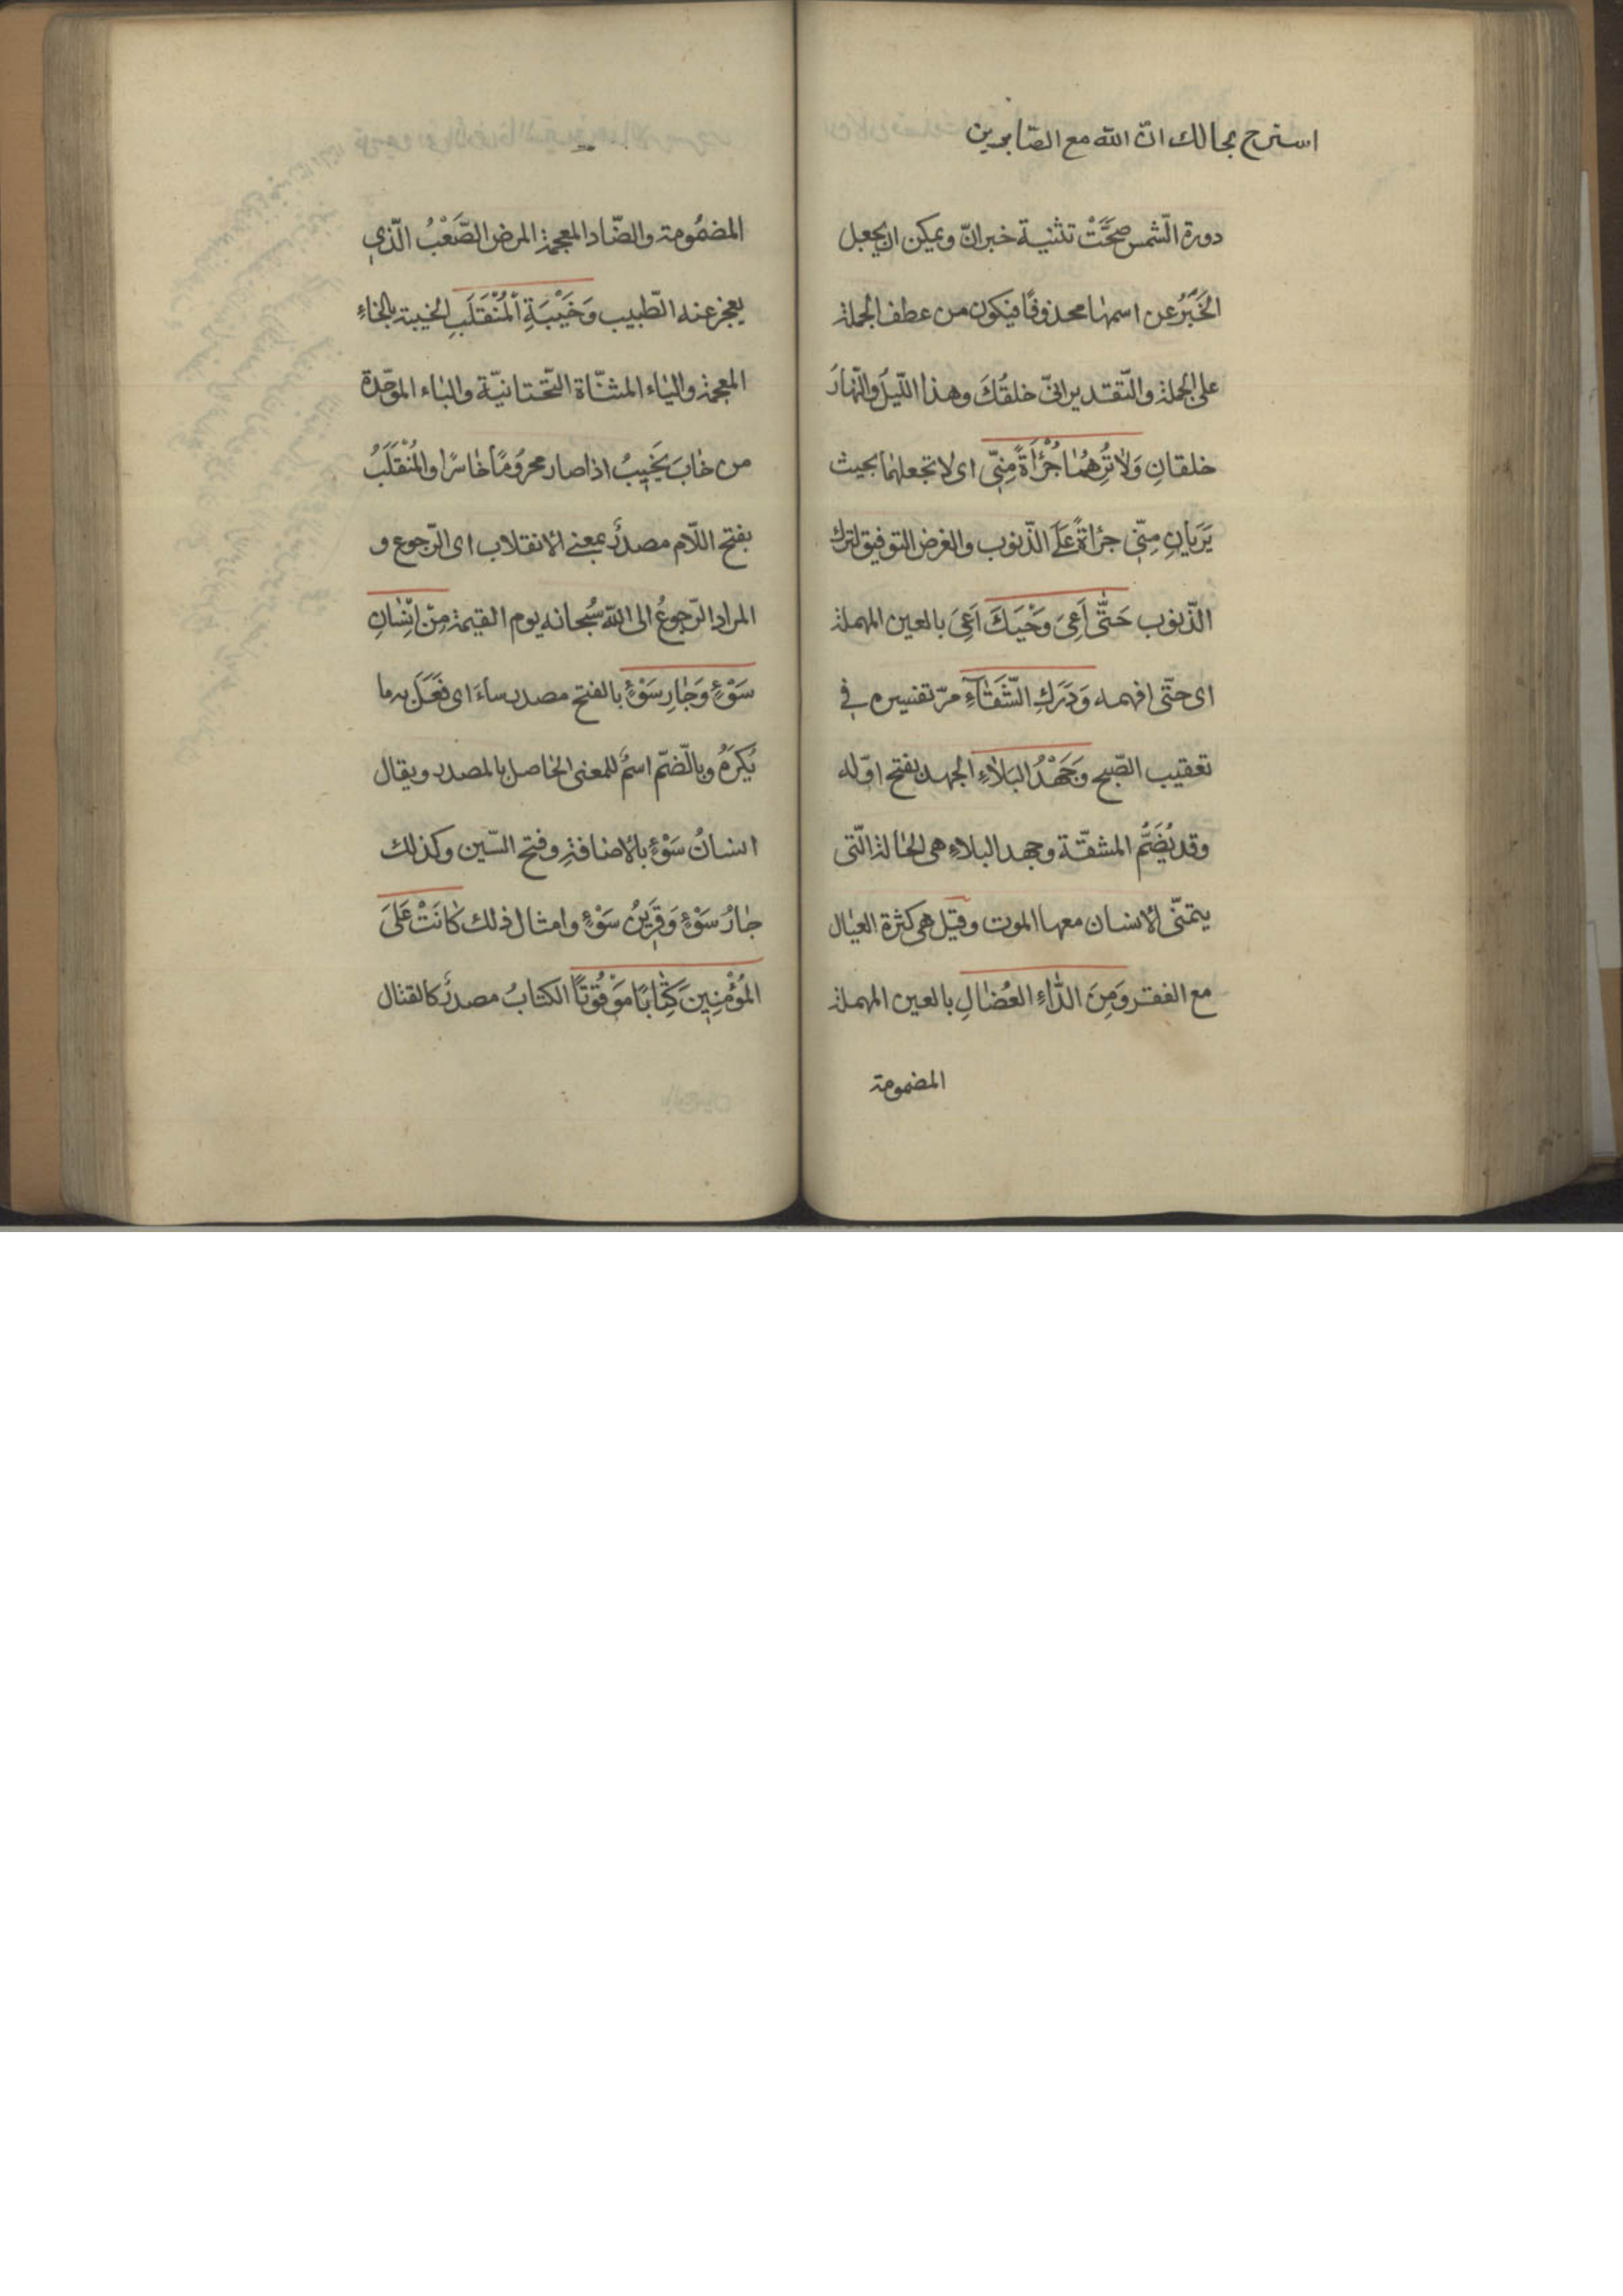 استرح بحالك انّ الله مع الصّابرين
دورة الشّمس صحَّتْ تثنية خبر انّ ويمكن ان يجعل
الخَبَرُ عن اسمها محذوفًا فيكون من عطف الجملة
على الجملة والتّقدير انّي خلقُكَ وهذا اللّيلَ والنّهارَ
خلقانِ وَلاٰ تُرِهُمٰا جُرْأَةً مِنّي اى لا تجعلهما بحيث
يَرَيانِ مِنّي جرأةً عَلَى الذّنوب والغرض التوفيق لترك
الذّنوب حَتّٰى أَعِىَ وَحْيَكَ اَعِىَ بالعين المهملة
اى حتّى افهمه وَدَرَكِ الشَّقٰآءِ مرّ تفسيره في
تعقيب الصّبح وَجَهْدُ البَلاٰءِ الجهد بفتح اوّله
وقد يُضَمُّ المشقّة وجهد البلاء هى الحٰالة الّتى
يتمنّى الانسان معها الموت وقيل هى كثرة العيٰال
مع الفقر وَمِنَ الدّٰاءِ العُضٰالِ بالعين المهملة
المضمومة
المضمُومة والضّاد المعجمة المرض الصَّعْبُ الّذي
يعجز عنه الطّبيب وَخَيْبَةِ اَلْمُنْقَلَبِ الخيبة بالخٰاءِ
المعجمة واليٰاء المثنّاة التّحتانيّة والبٰاء الموَحّدة
من خٰابَ يَخيبُ اذا صار محرُومًا خٰاسرًا والمُنْقَلَبُ
بفتح اللّام مصدرٌ بمعنى الانقلاب اى الرّجوع و
المراد الرّجوعُ الى اللّه سُبحانه يوم القيمة مِنْ اِنْسٰانِ
سَوْءٍ وَجٰارِ سَوْءٍ بالفتح مصدر ساءَ اى فَعَلَ به ما
يُكرَهُ وبالضّمّ اسمٌ للمعنى الحٰاصل بالمصدر ويقال
انسانُ سَوْءٍ بالاضافةِ وفتح السّين وكذلك
جٰارُ سَوْءٍ وَقَرينُ سَوْءٍ وامثال ذلك كٰانَتْ عَلَى
المُؤْمِنِينَ كِتٰابًا مَوْقُوتًا الكتٰابُ مصدرٌ كالقتال